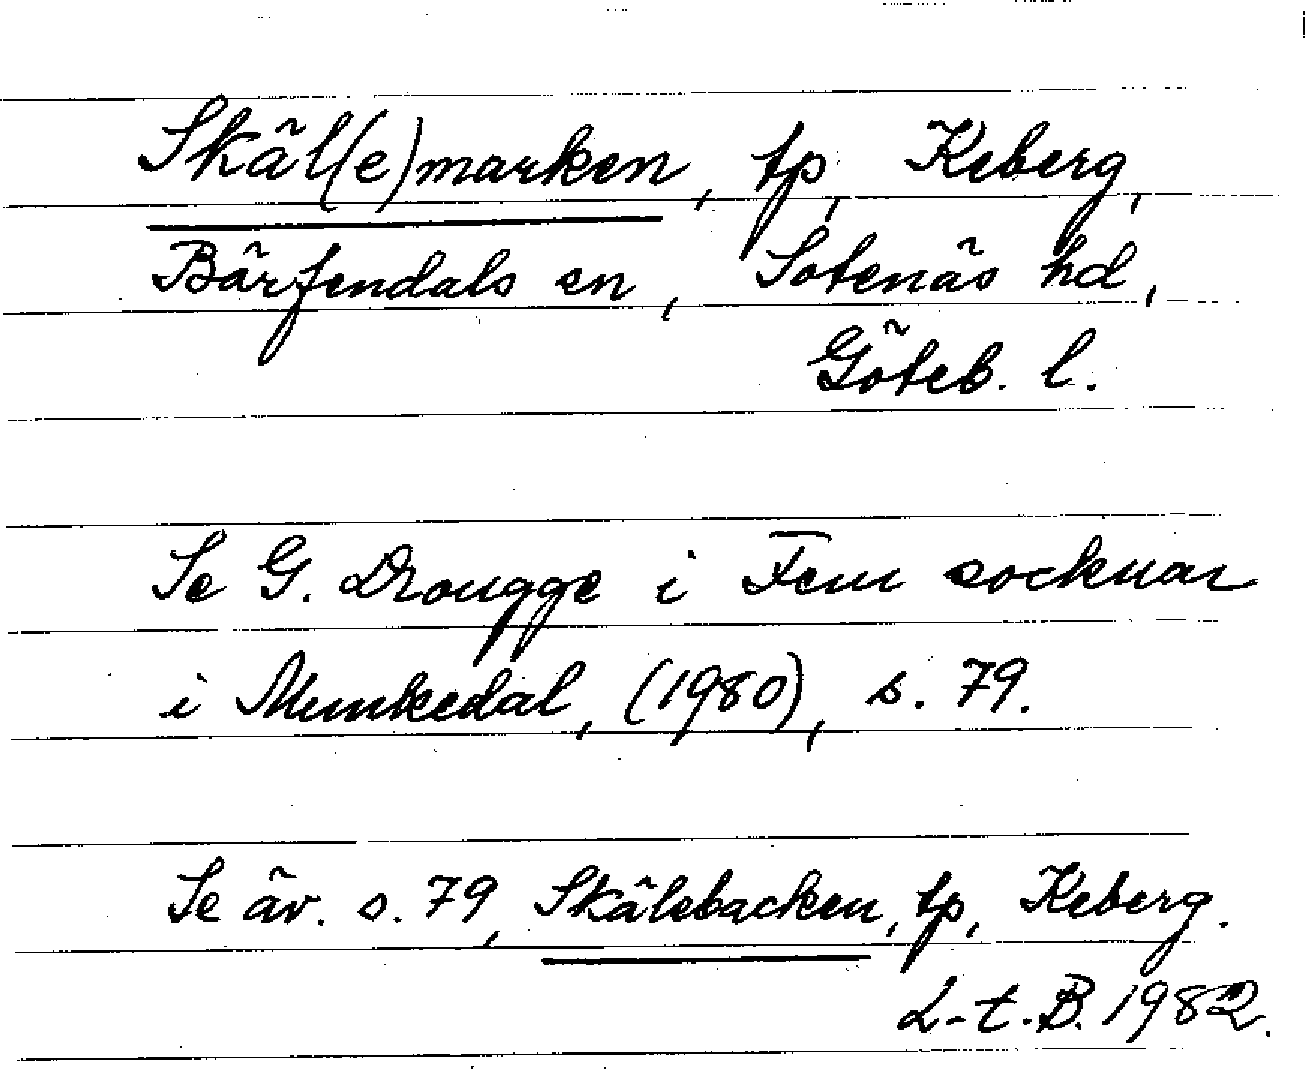 Skäl(e)marken, tp, Keberg,
Bärfendals sn, Sotenäs hd,
Göteb. l.
Se G. Drougge i Fem socknar
i Munkedal, (1980), s. 79.
Se äv. s. 79, Skälebacken, tp, Keberg.
L-t. B. 1982.